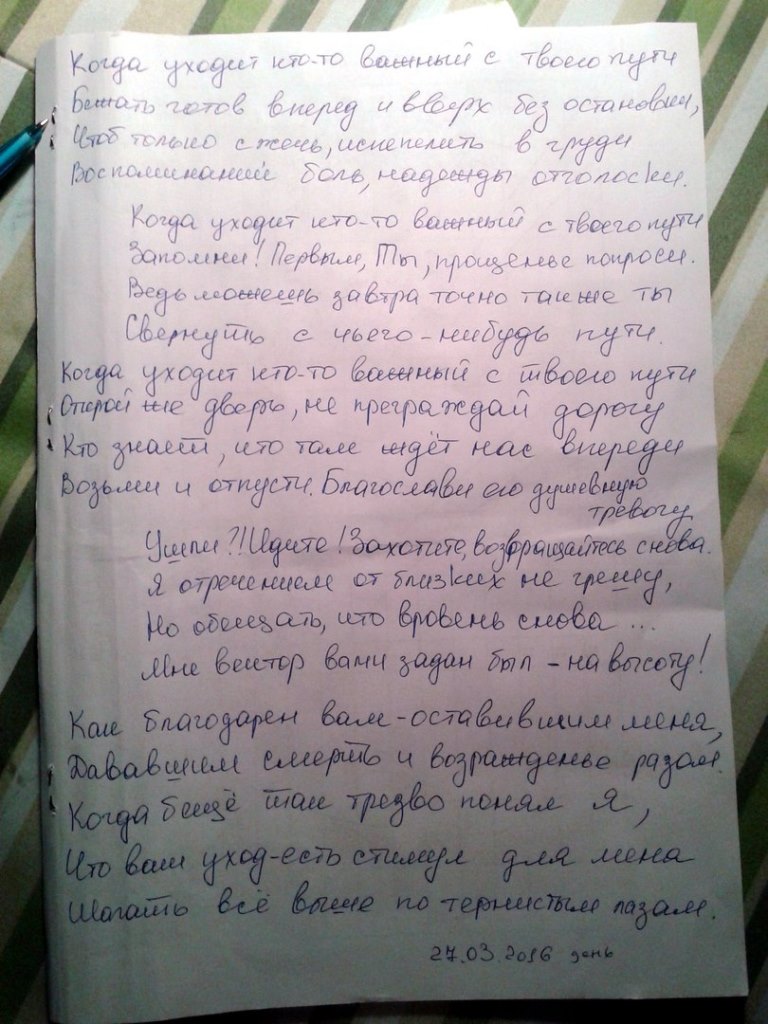 Когда уходит кто-то важный с твоего пути
Бежать готов вперед и вверх без остановки,
Чтоб только сжечь, испепелить в груди
Воспоминаний боль, надежды отголоски.
Когда уходит кто-то важный с твоего пути
Запомни! Первым, Ты, прощенье попроси.
Ведь можешь завтра точно также ты
Свернуть с чьего-нибудь пути.
Когда уходит кто-то важный с твоего пути
Открой же дверь, не преграждай дорогу
Кто знает, что там ждёт нас впереди
Возьми и отпусти. Благослави его душевную
тревогу.
Ушли?! Идите! Захотите, возвращайтесь снова.
Я отречением от близких не грешу,
Но обещать, что вровень снова ...
Мне вектор вами задан был - на высоту!
Как благодарен вам - оставившим меня,
Дававшим смерть и возражденье разом.
Когда б ещё так трезво понял я,
Что ваш уход - есть стимул для мена
Шагать всё выше по тернистым лазам.
27.03.2016 день